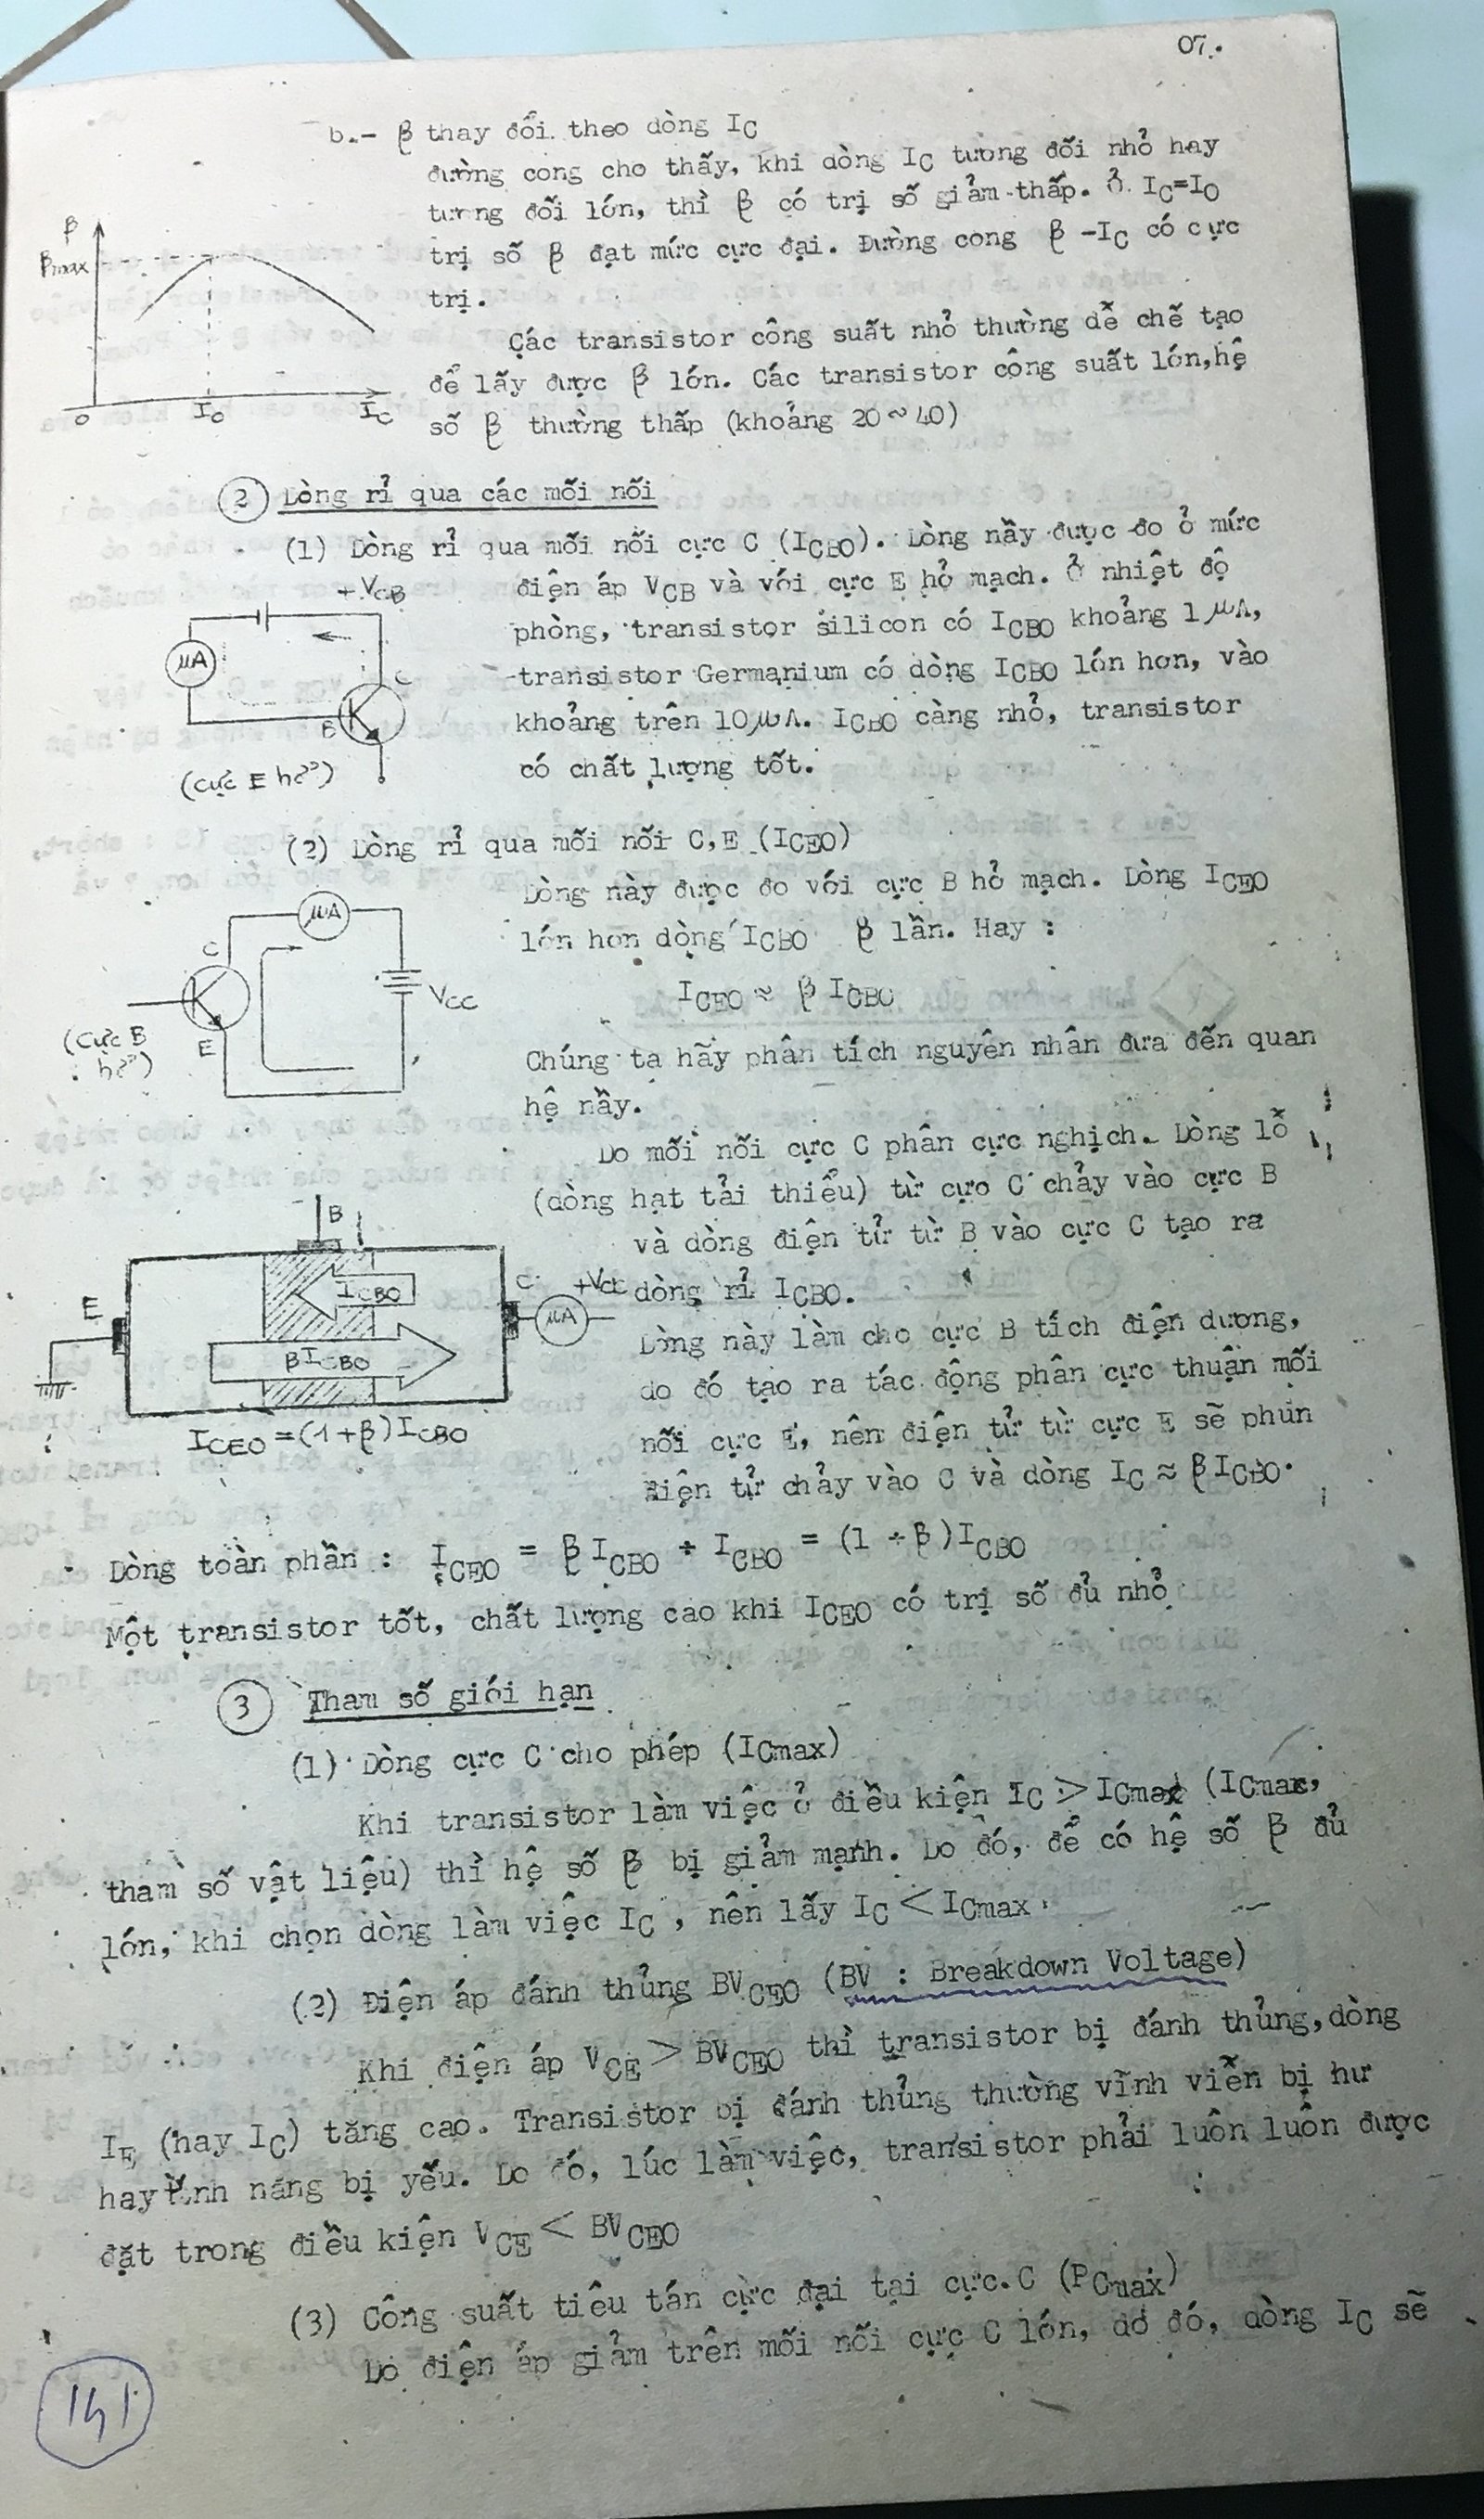 07.
b.- β thay đổi theo dòng IC
đường cong cho thấy, khi dòng IC tương đối nhỏ hay
tương đối lớn, thì β có trị số giảm thấp. Ở IC=IO
trị số β đạt mức cực đại. Đường cong β -IC có cực
trị.
β
βmax
O
IO
IC
Các transistor công suất nhỏ thường dễ chế tạo
để lấy được β lớn. Các transistor công suất lớn,hệ
số β thường thấp (khoảng 20~40)
2 Dòng rỉ qua các mối nối
(1) Dòng rỉ qua mối nối cực C (ICBO). Dòng nầy được đo ở mức
điện áp VCB và với cực E hở mạch. Ở nhiệt độ
phòng, transistor silicon có ICBO khoảng 1μA,
transistor Germanium có dòng ICBO lớn hơn, vào
khoảng trên 10μA. ICBO càng nhỏ, transistor
có chất lượng tốt.
+ VCB
μA
C
B
(Cực E hở)
(2) Dòng rỉ qua mối nối C,E (ICEO)
Dòng này được đo với cực B hở mạch. Dòng ICEO
lớn hơn dòng ICBO β lần. Hay :
ICEO ≈ β ICBO
Chúng ta hãy phân tích nguyên nhân đưa đến quan
hệ nầy.
μA
C
VCC
(Cực B
hở)
E
Do mối nối cực C phân cực nghịch. Dòng lỗ
(dòng hạt tải thiểu) từ cực C chảy vào cực B
và dòng điện tử từ B vào cực C tạo ra
dòng rỉ ICBO.
Dòng này làm cho cực B tích điện dương,
do đó tạo ra tác động phân cực thuận mối
nối cực E, nên điện tử từ cực E sẽ phun
điện tử chảy vào C và dòng IC ≈ β ICBO.
B
ICBO
C
+VCC
μA
E
βICBO
ICEO =(1+β)ICBO
Dòng toàn phần : ICEO = β ICBO + ICBO = (1 + β)ICBO
Một transistor tốt, chất lượng cao khi ICEO có trị số đủ nhỏ
3 Tham số giới hạn
(1) Dòng cực C cho phép (ICmax)
Khi transistor làm việc ở điều kiện IC > ICmax (ICmax,
tham số vật liệu) thì hệ số β bị giảm mạnh. Do đó, để có hệ số β đủ
lớn, khi chọn dòng làm việc IC , nên lấy IC < ICmax.
(2) Điện áp đánh thủng BVCEO (BV : Breakdown Voltage)
Khi điện áp VCE > BVCEO thì transistor bị đánh thủng,dòng
IE (hay IC) tăng cao. Transistor bị đánh thủng thường vĩnh viễn bị hư
hay tính năng bị yếu. Do đó, lúc làm việc, transistor phải luôn luôn được
đặt trong điều kiện VCE < BVCEO
(3) Công suất tiêu tán cực đại tại cực C (PCmax)
Do điện áp giảm trên mối nối cực C lớn, do đó, dòng IC sẽ
141